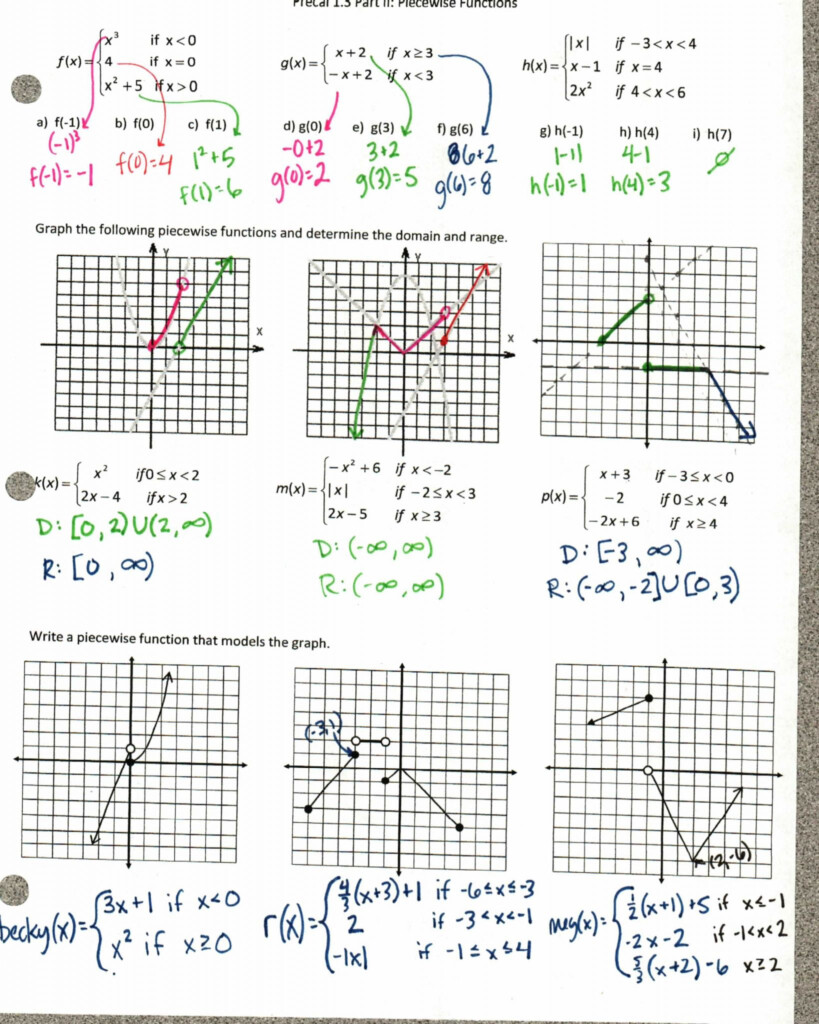 PreCal 1.3 Part II: Piecewise Functions
f(x) = { x³ if x < 0
4 if x = 0
x² + 5 if x > 0
g(x) = { x + 2 if x ≥ 3
−x + 2 if x < 3
h(x) = { |x| if −3 < x < 4
x − 1 if x = 4
2x² if 4 < x < 6
a) f(-1) b) f(0) c) f(1) d) g(0) e) g(3) f) g(6) g) h(-1) h) h(4) i) h(7)
(-1)³
f(-1) = -1
f(0) = 4
1² + 5
f(1) = 6
-0+2
g(0) = 2
3+2
g(3) = 5
6+2
g(6) = 8
|-1|
h(-1) = 1
4-1
h(4) = 3
∅
Graph the following piecewise functions and determine the domain and range.
Y
X
Y
X
k(x) = { x² if 0 ≤ x < 2
2x − 4 if x > 2
D: [0, 2) U (2, ∞)
R: [0, ∞)
m(x) = { −x² + 6 if x < −2
|x| if −2 ≤ x < 3
2x − 5 if x ≥ 3
D: (-∞, ∞)
R: (-∞, ∞)
p(x) = { x + 3 if −3 ≤ x < 0
−2 if 0 ≤ x < 4
−2x + 6 if x ≥ 4
D: [-3, ∞)
R: (-∞, -2] U [0, 3)
Write a piecewise function that models the graph.
(-3,1)
(2,-6)
becky(x) = { 3x+1 if x<0
x² if x≥0
r(x) = { 4/3(x+3)+1 if -6≤x≤-3
2 if -3<x<-1
-|x| if -1≤x≤4
meg(x) = { 1/2(x+1)+5 if x≤-1
-2x-2 if -1<x<2
5/3(x+2)-6 x≥2